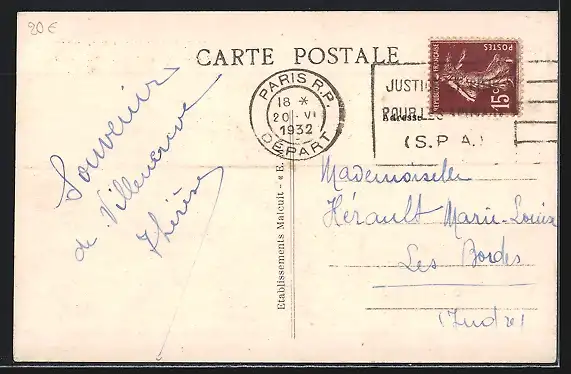 20€
CARTE POSTALE
PARIS R.P.
18 *
20 - VI
1932
DÉPART
POSTES
REPUBLIQUE FRANÇAISE
15c
JUSTICE
POUR LES
(S.P.A.)
Adresse
Souvenir
de Villeneuve
Thérèse
Etablissements Malcuit - « E.
Mademoiselle
Hérault Marie-Louise
Les Bordes
(Indre)